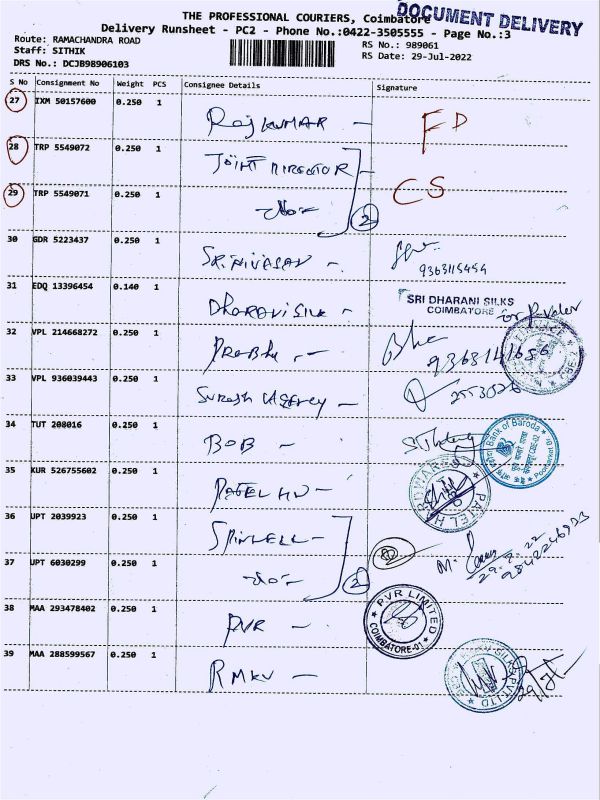 THE PROFESSIONAL COURIERS, Coimbatore
DOCUMENT DELIVERY
Delivery Runsheet - PC2 - Phone No.:0422-3505555 - Page No.:3
Route: RAMACHANDRA ROAD
RS No.: 989061
Staff: SITHIK
RS Date: 29-Jul-2022
DRS No.: DCJB98906103
S No Consignment No Weight PCS Consignee Details Signature
27 IXM 50157600 0.250 1
RajKUMAR - FD
28 TRP 5549072 0.250 1
JOINT DIRECTOR -
29 TRP 5549071 0.250 1
CS
2
30 GDR 5223437 0.250 1
SRINIVASAN -
9363115454
31 EDQ 13396454 0.140 1
Dharani Silk -
SRI DHARANI SILKS
COIMBATORE
32 VPL 214668272 0.250 1
Prabhu -
33 VPL 936039443 0.250 1
Suresh Agency -
34 TUT 208016 0.250 1
BOB -
Bank of Baroda
35 KUR 526755602 0.250 1
PATEL HW -
PATEL HARDWARE
36 UPT 2039923 0.250 1
37 UPT 6030299 0.250 1
2
29.7.22
38 MAA 293478402 0.250 1
PVR -
PVR LIMITED
COIMBATORE-01
39 MAA 288599567 0.250 1
RMKV -
29/7